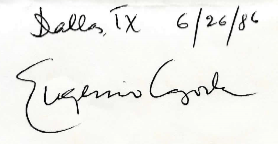 Dallas, TX 6/26/86
Eugenio